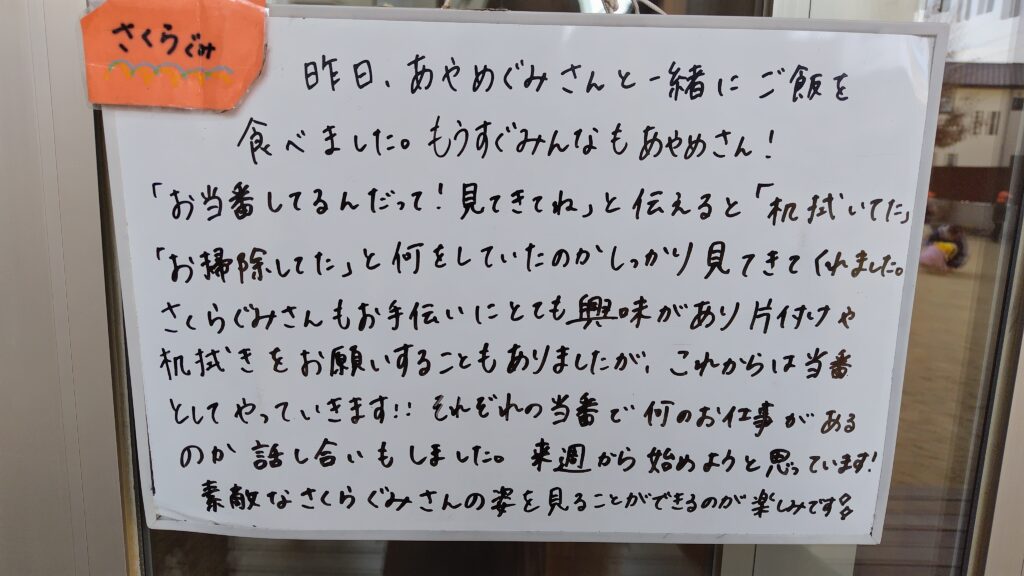 さくらぐみ
昨日、あやめぐみさんと一緒にご飯を
食べました。もうすぐみんなもあやめさん!
「お当番してるんだって!見てきてね」と伝えると「机拭いてた」
「お掃除してた」と何をしていたのかしっかり見てきてくれました。
さくらぐみさんもお手伝いにとても興味があり片付けや
机拭きをお願いすることもありましたが、これからは当番
としてやっていきます!!それぞれの当番で何のお仕事がある
のか話し合いもしました。来週から始めようと思っています!
素敵なさくらぐみさんの姿を見ることができるのが楽しみです!